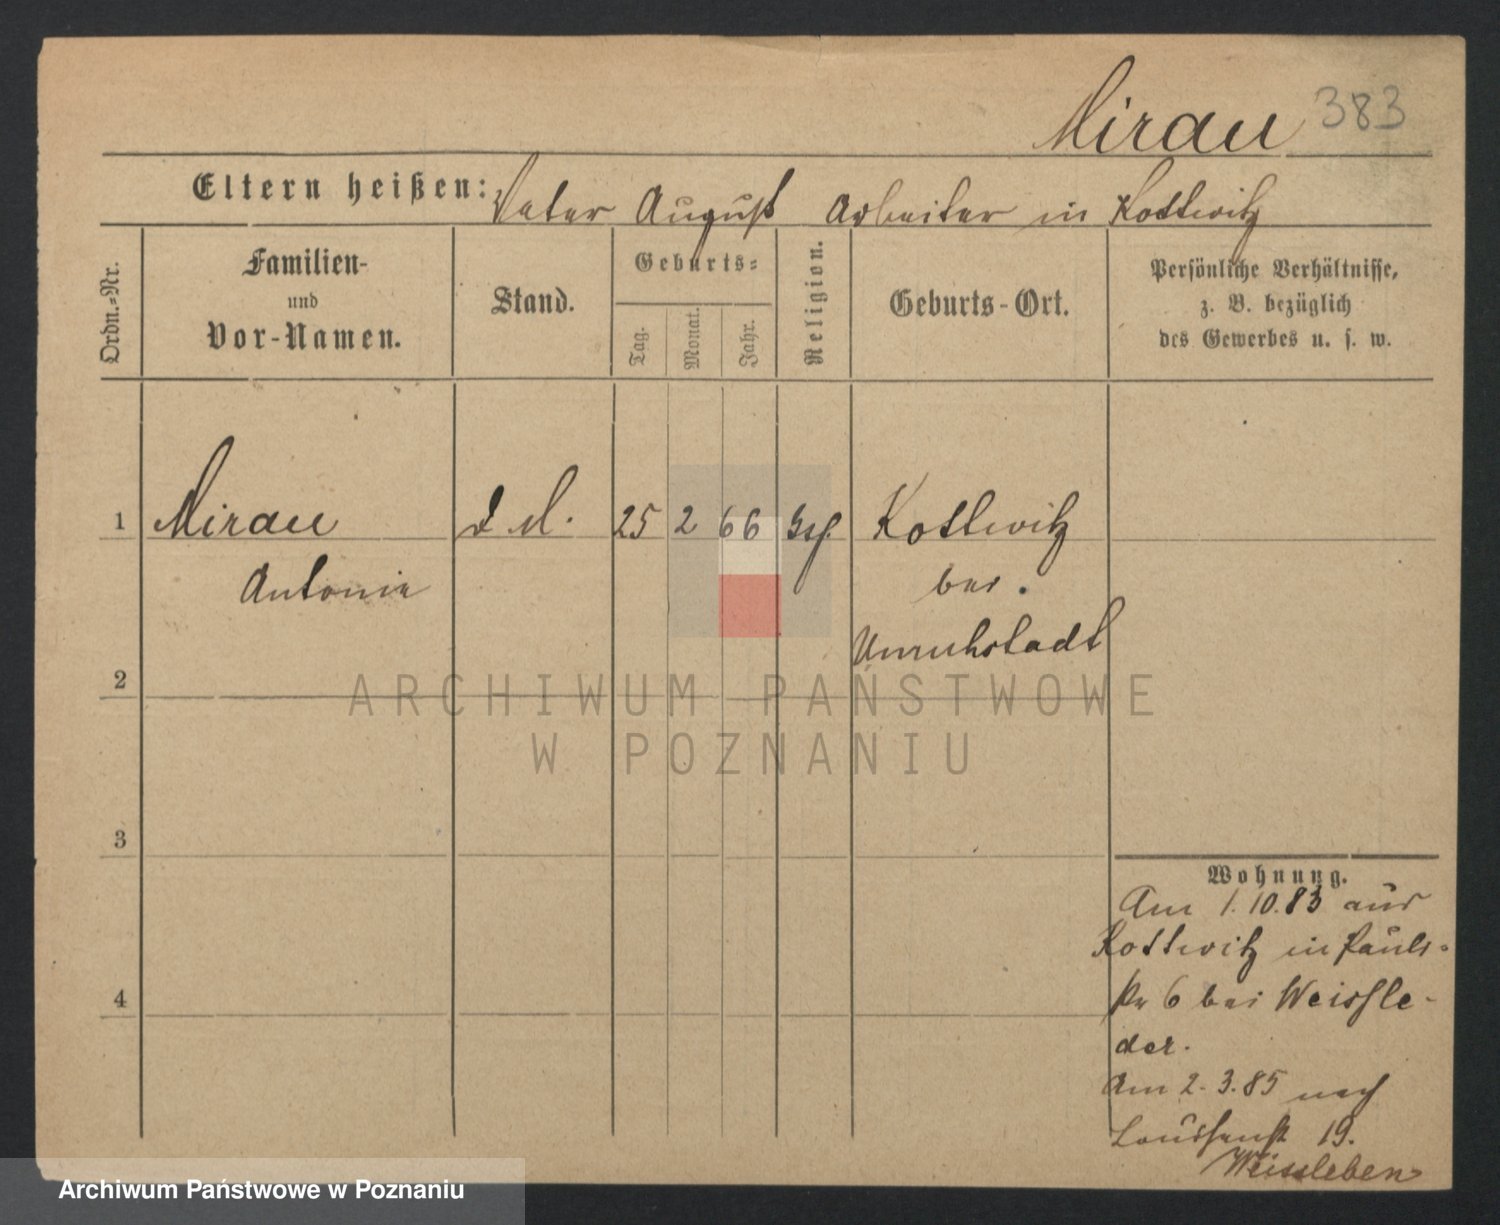 Mirau 383
Eltern heißen: Vater August Arbeiter in Kottwitz
Ordn.-Nr.
Familien-
und
Vor-Namen.
Stand.
Geburts-
Tag.
Monat.
Jahr.
Religion.
Geburts-Ort.
Persönliche Verhältnisse,
z. B. bezüglich
des Gewerbes u. s. w.
1 Mirau D. M. 25 2 66 Kottwitz
Antonie bei
Unruhstadt
2
3
4
Wohnung.
Am 1.10.83 aus
Kottwitz in Pauls-
str 6 bei Weissle-
der.
Am 2.3.85 nach
19.
Weissleben
ARCHIWUM PAŃSTWOWE
W POZNANIU
Archiwum Państwowe w Poznaniu